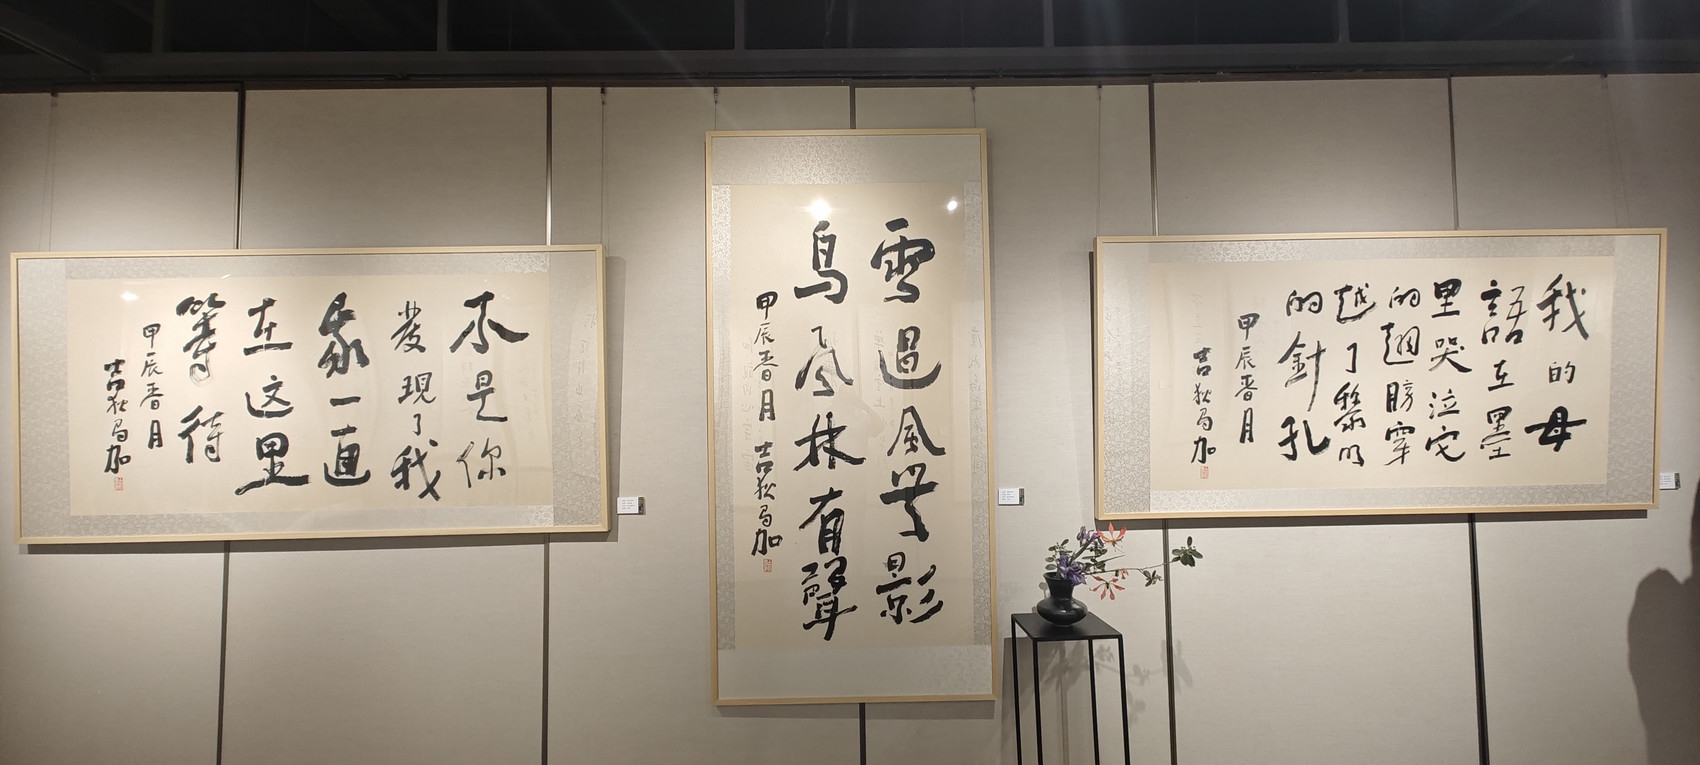 不是你
發現了我
一直
在这里
等待
甲辰春月
吉狄马加
雪過風無影
鳥飞林有聲
甲辰春月 吉狄马加
我的母
語在墨
里哭泣它
的翅膀穿
越了黎明
的針孔
甲辰春月
吉狄马加